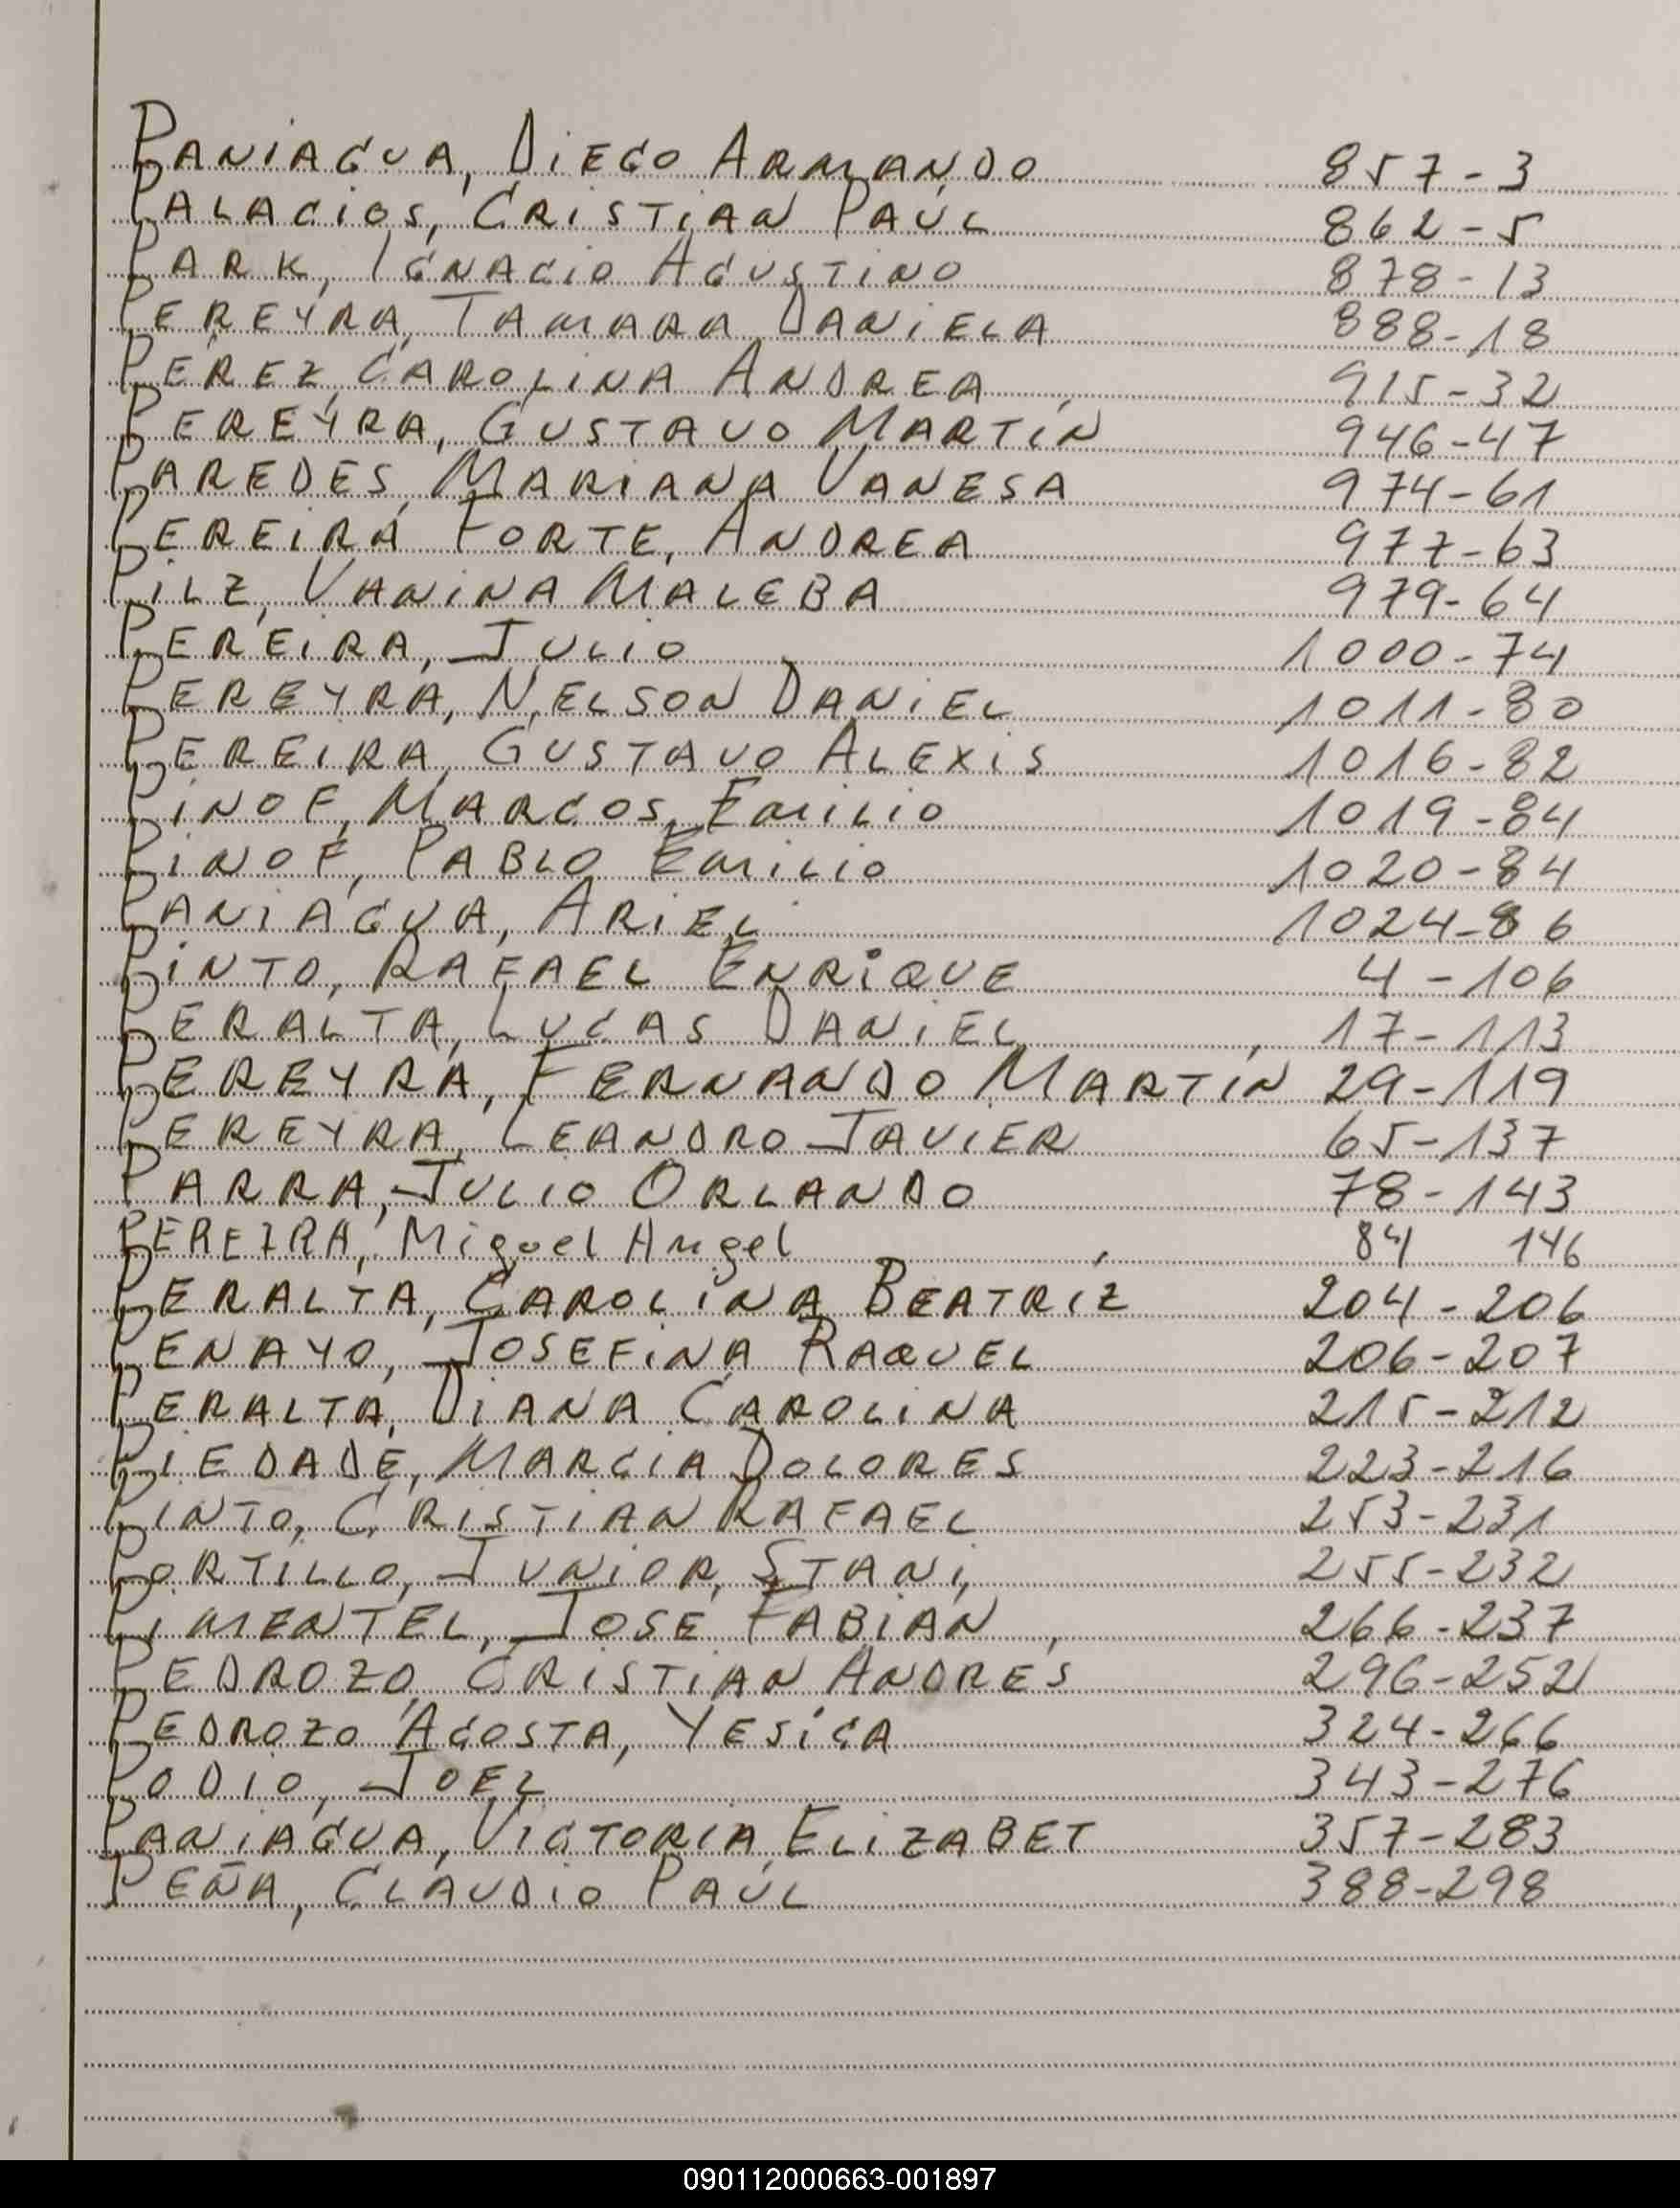 PANIAGUA, DIEGO ARMANDO 857-3
PALACIOS, CRISTIAN PAÚL 862-5
PARK, IGNACIO AGUSTINO 878-13
PEREYRA, TAMARA DANIELA 888-18
PEREZ, CAROLINA ANDREA 915-32
PEREYRA, GUSTAVO MARTÍN 946-47
PAREDES, MARIANA VANESA 974-61
PEREIRA FORTE, ANDREA 977-63
PILZ, VANINA MALEBA 979-64
PEREIRA, JULIO 1000-74
PEREYRA, NELSON DANIEL 1011-80
PEREIRA, GUSTAVO ALEXIS 1016-82
PINOF, MARCOS EMILIO 1019-84
PINOF, PABLO EMILIO 1020-84
PANIAGUA, ARIEL 1024-86
PINTO, RAFAEL ENRIQUE 4-106
PERALTA, LUCAS DANIEL 17-113
PEREYRA, FERNANDO MARTÍN 29-119
PEREYRA, LEANDRO JAVIER 65-137
PARRA, JULIO ORLANDO 78-143
PEREIRA, Miguel Angel 84 146
PERALTA, CAROLINA BEATRÍZ 204-206
PENAYO, JOSEFINA RAQUEL 206-207
PERALTA, DIANA CAROLINA 215-212
PIEDADE, MARCIA DOLORES 223-216
PINTO, CRISTIAN RAFAEL 253-231
PORTILLO, JUNIOR STANI, 255-232
PIMENTEL, JOSE FABIÁN 266-237
PEDROZO, CRISTIAN ANDRÉS 296-252
PEDROZO ACOSTA, YESICA 324-266
PODIO, JOEL 343-276
PANIAGUA, VICTORIA ELIZABET 357-283
PEÑA, CLAUDIO PAÚL 388-298
090112000663-001897